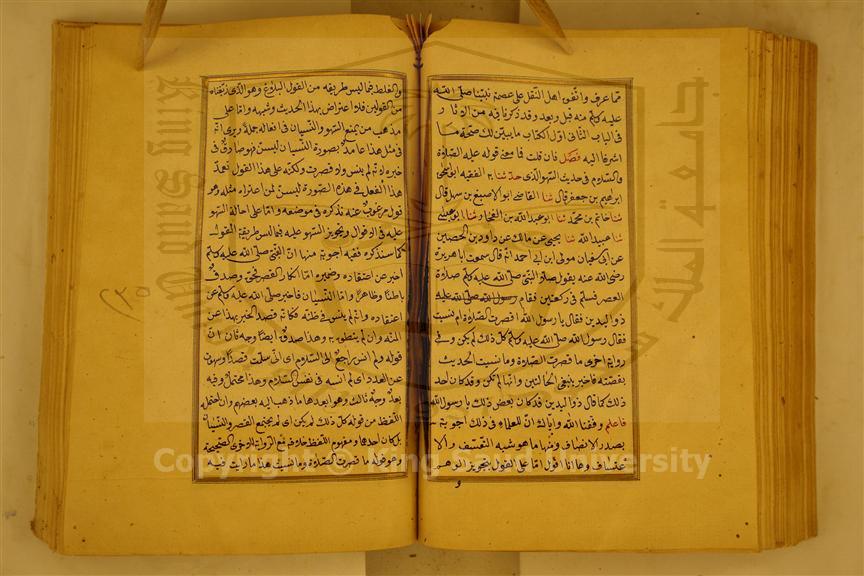 مما عرف واتفق اهل النقل على عصمة نبينا صلى الله
عليه وسلم منه قبل وبعد وقد ذكرنا فيه من الوثار
فى الباب الثانى اول الكتاب ما يبين لك صحة ما
اشرنا اليه فصل فان قلت فما معنى قوله عليه الصلاة
والسلام فى حديث السهو الذى حدثنا به الفقيه ابو اسحق
ابراهيم بن جعفر قال ثنا القاضى ابو الاصبغ بن سهل قال
ثنا حاتم بن محمد ثنا ابو عبد الله بن الفخار ثنا ابو عيسى
ثنا عبيد الله ثنا يحيى عن مالك عن داود بن الحصين
عن ابى سفيان مولى ابن ابى احمد انه قال سمعت ابا هريرة
رضى الله عنه يقول صلى النبى صلى الله عليه وسلم صلاة
العصر فسلم فى ركعتين فقام رسول الله صلى الله عليه
ذو اليدين فقال يا رسول الله اقصرت الصلاة ام نسيت
فقال رسول الله صلى الله عليه وسلم كل ذلك لم يكن وفى
رواية اخرى ما قصرت الصلاة وما نسيت الحديث
بقصته فاخبر بنفى الحالتين وانها لم تكن وقد كان احد
ذلك كما قال ذو اليدين قد كان بعض ذلك يا رسول الله
فاعلم وفقنا الله واياك ان للعلماء فى ذلك اجوبة
بصدر الانصاف ومنها ما هو شبه التعسف والا
عتساف وها انا اقول اما على القول بتجويز الوهم
و
والغلط فيما ليس طريقه من القول البلاغ وهو الذى زيفناه
من القولين فلا اعتراض بهذا الحديث وشبهه واما على
مذهب من يمنع السهو والنسيان فى افعاله جملة ويرى انه
فى مثل هذا عامد بصورة النسيان ليسن فهو صادق فى
خبره لانه لم ينس ولا قصرت ولكنه على هذا القول تعمد
هذا الفعل فى هذه الصورة ليسن لمن اعتراه مثله وهو
قول مرغوب عنه نذكره فى موضعه واما على احالة السهو
عليه فى الاقوال وتجويز السهو عليه فيما ليس طريقه القول
كما سنذكره ففيه اجوبة منها ان النبى صلى الله عليه وسلم
اخبر عن اعتقاده وضميره اما انكار القصر فحق وصدق
باطنا وظاهرا واما النسيان فاخبر صلى الله عليه وسلم عن
اعتقاده وانه لم ينس فى ظنه فكانه قصد الخبر بهذا عن
ظنه وان لم ينطق به وهذا صدق ايضا ووجه ثان ان
قوله ولم انس راجع الى السلام اى انى سلمت قصدا وسهوت
عن العدد اى لم انسه فى نفس السلام وهذا محتمل وفيه
بعد ووجه ثالث وهو ابعدها ما ذهب اليه بعضهم وان احتمله
اللفظ من قوله كل ذلك لم يكن اى لم يجتمع القصر والنسيان
بل كان احدهما ومفهوم اللفظ خلافه مع الرواية الاخرى الصحيحة
وهو قوله ما قصرت الصلاة وما نسيت هذا ما رايت فيه
Copyright © King Saud University
King Saud University
جامعة الملك سعود